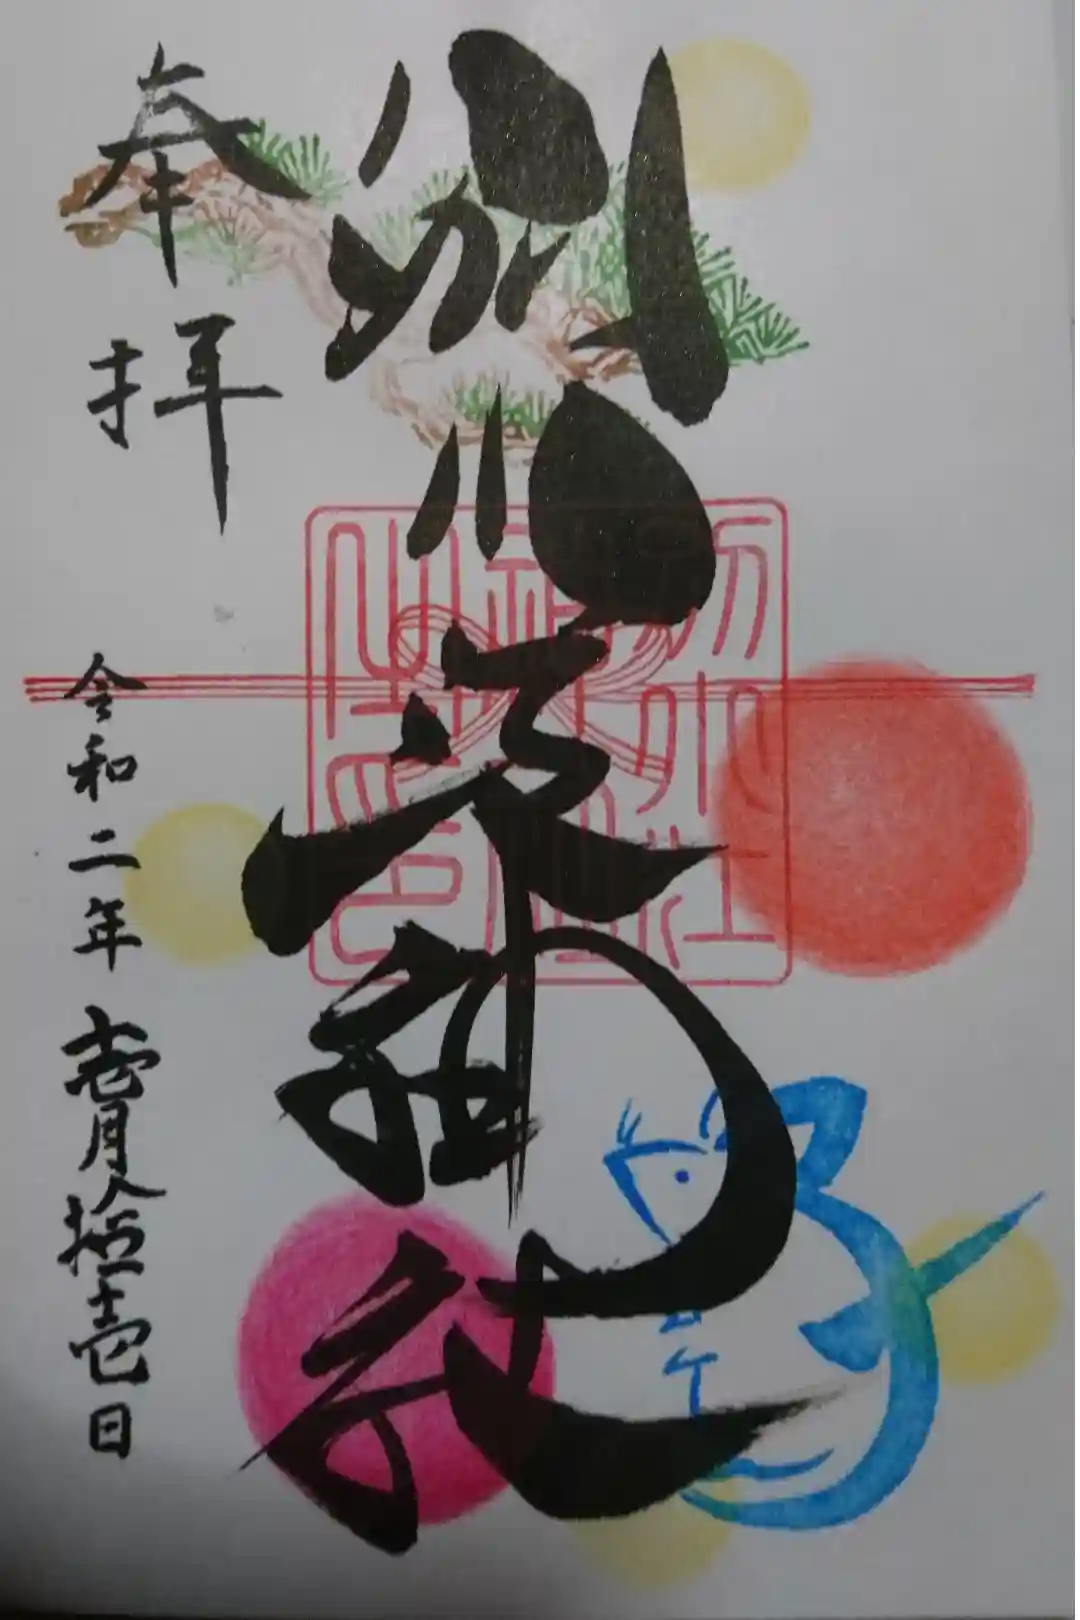 別小江神社
奉拝
令和二年壱月拾壱日
別小江
神社
之印